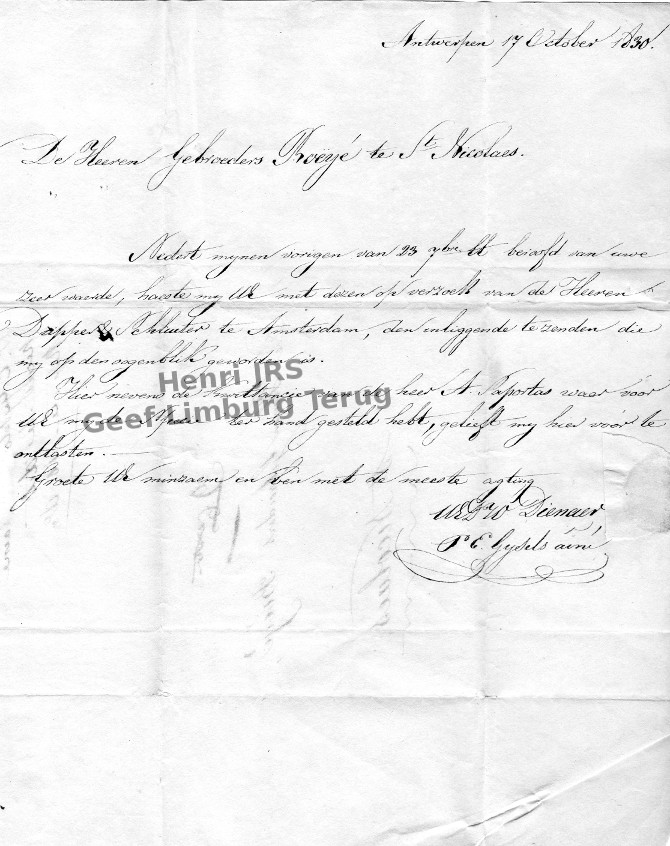 Antwerpen 17 October 1830.
De Heeren Gebroeders Roëyé te St. Nicolaes.
Nedert mynen vorigen van 23 7bre ll beroofd van uwe
zeer waarde, haeste my UE met dezen op verzoek van de Heeren
Dapper & Schluiter te Amsterdam, den inliggende te zenden die
my op den oogenblik geworden is.
Hier nevens de van de heer A. Saportas waer vóór
UE ter hand gesteld hebt, gelieft my hier vóór te
ontlasten.
Groete UE minzaem en ben met de meeste agting
UEDW Dienaer
P. E. Gysels ainé
Henri JRS
Geef Limburg Terug